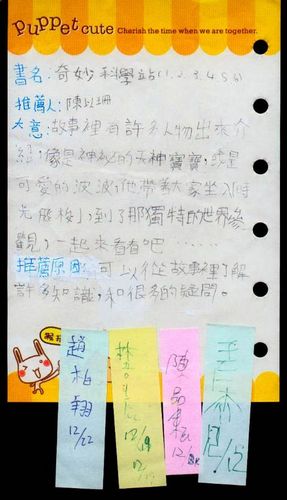 Puppet cute Cherish the time when we are together.
書名:奇妙科學站(1.2.3.4.5.6)
推薦人:陳以珊
大意:故事裡有許多人物出來介
紹,像是神秘的天神寶寶,或是
可愛的波波,他帶著大家坐入時
光飛梭,到了那獨特的世界參
觀,一起來看看吧……
推薦原因:可以從故事裡了解
許多知識,和很多的疑問。
趙柏翔
12/22
林
12/19
陳品
12/
王
12/15